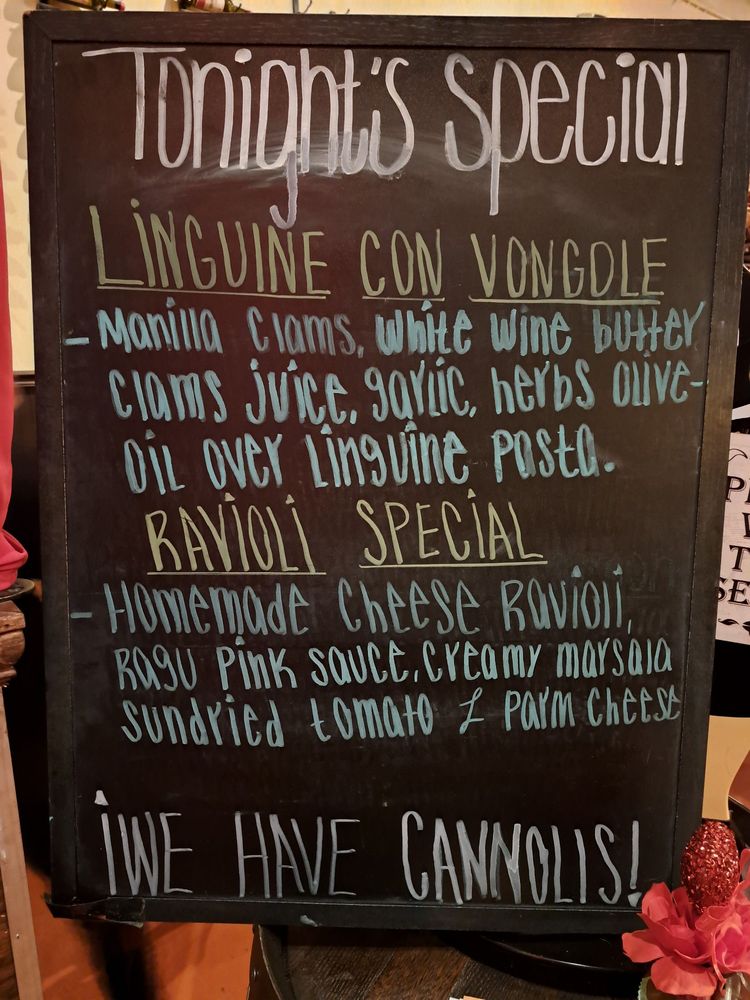 Tonight's Special
LiNGUINE CON VONGOLE
- Manilla Clams, white wine butter
clams juice, garlic, herbs olive-
oil over linguine pasta.
RAViOLi SPECiAL
- Homemade Cheese Ravioli,
Ragu Pink sauce, creamy marsala
sundried tomato & Parm cheese
¡WE HAVE CANNOLIS!